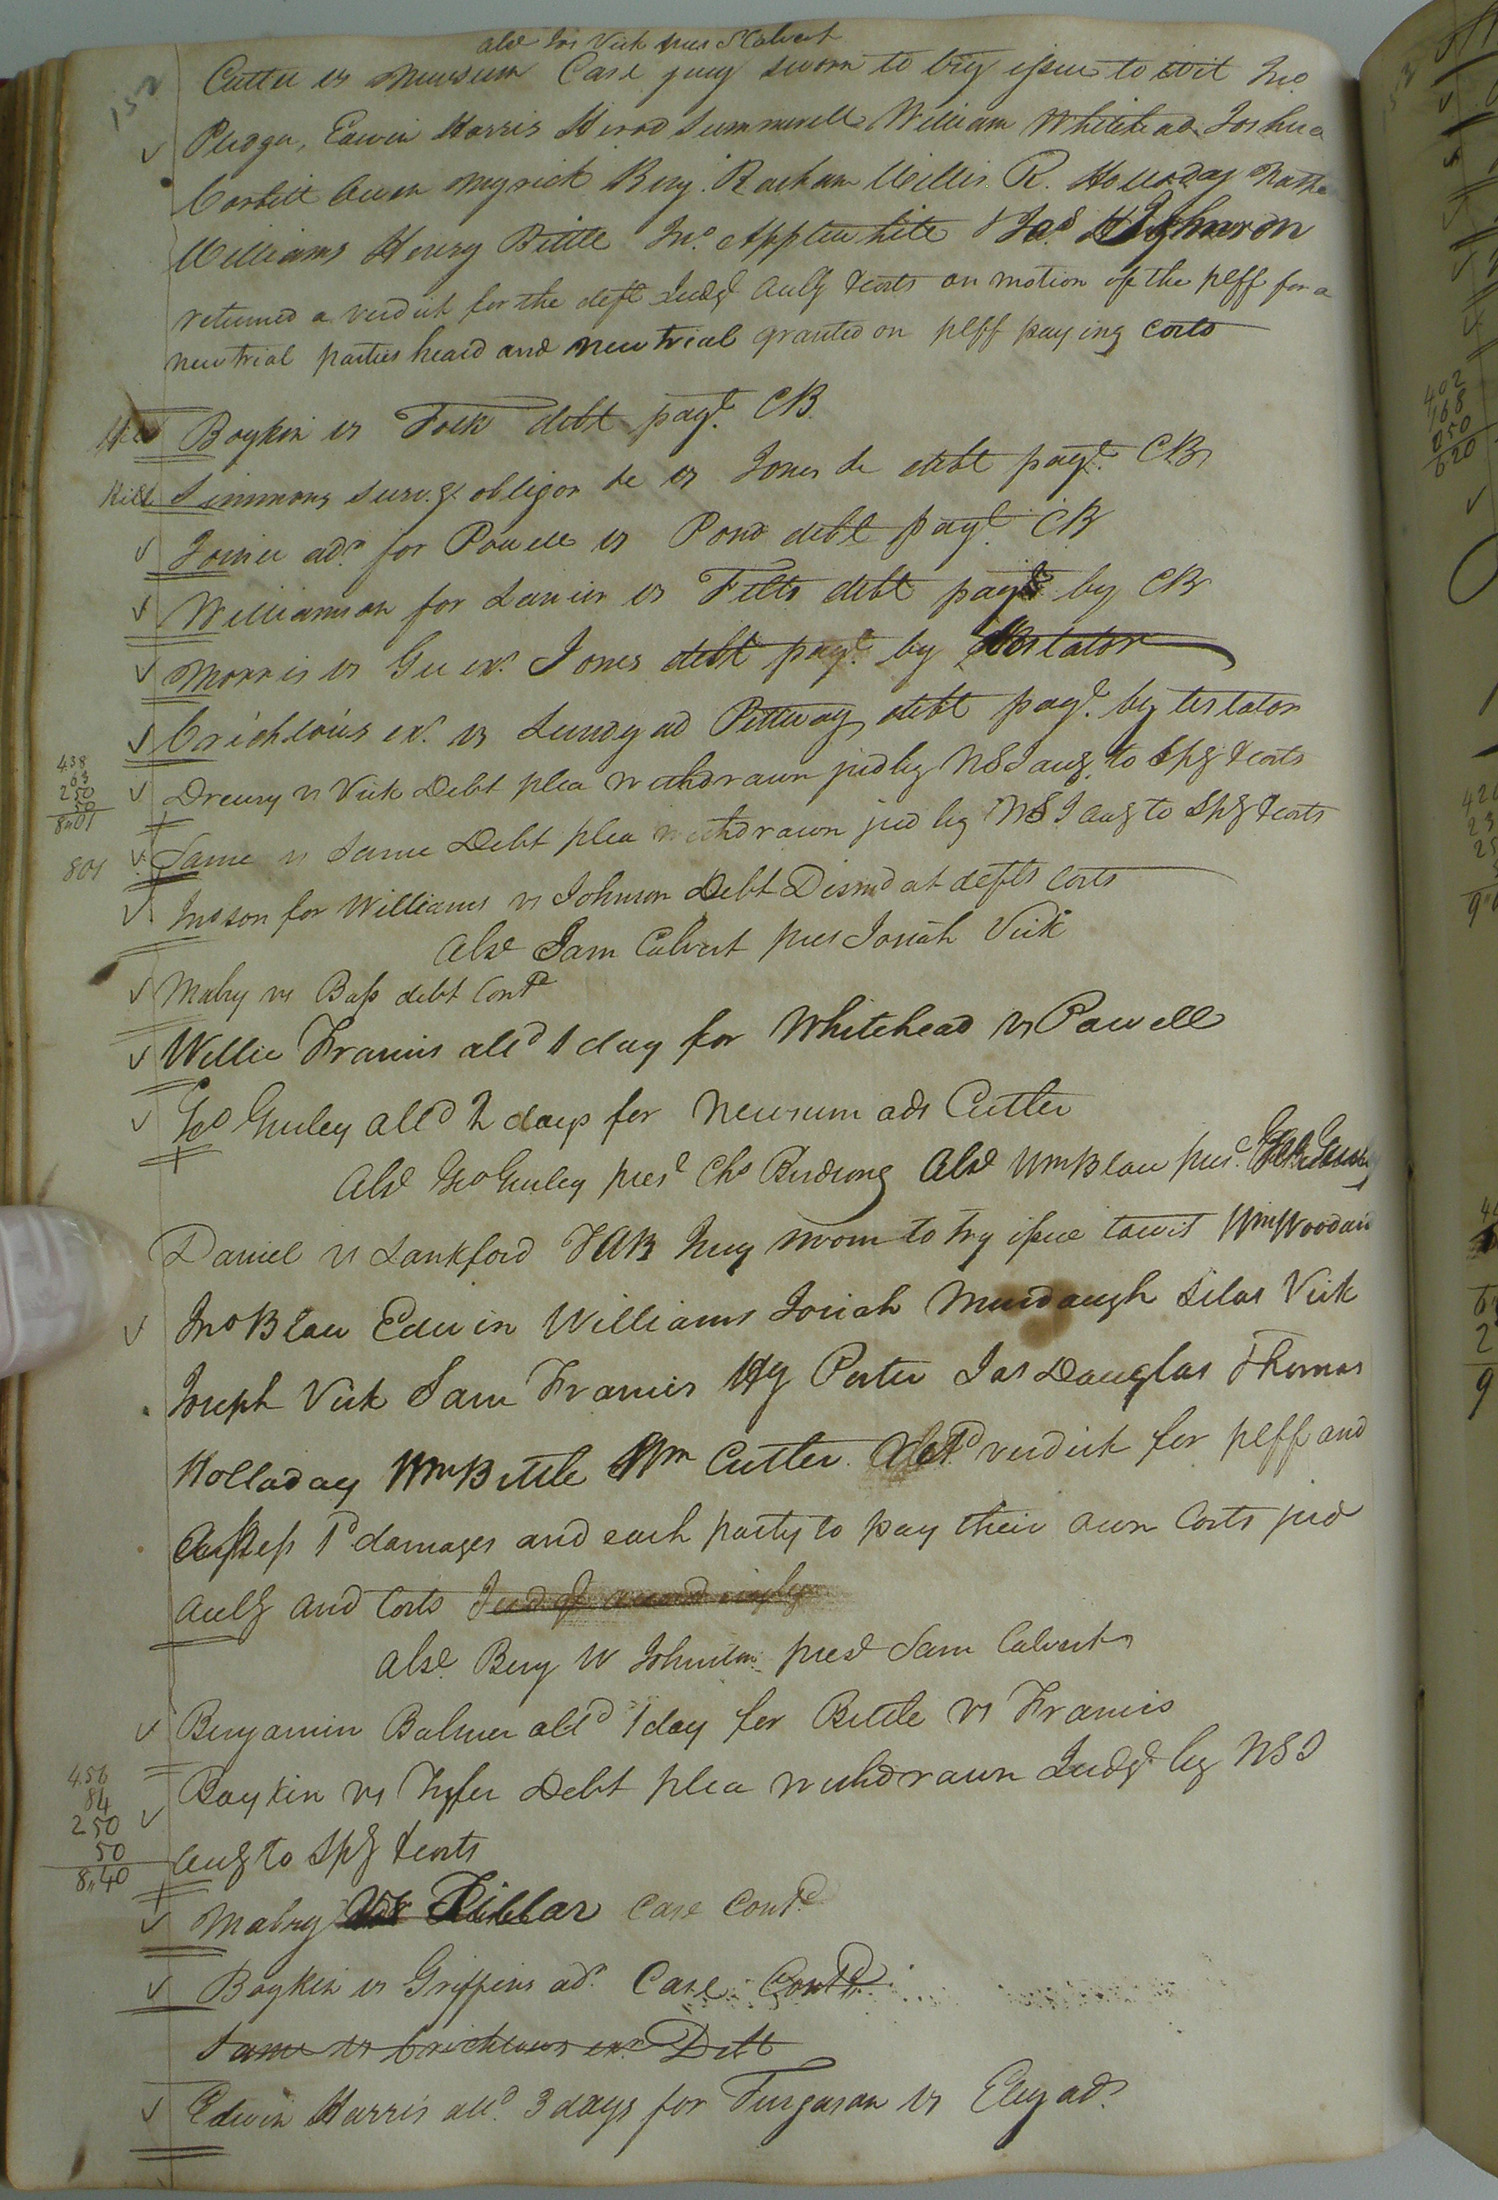 abs.d Jos Vick pres S Calvert
152
Cutler vs Newsum Case jury sworn to try issue to wit Jno
Pledger, Edwin Harris Herod Summerell William Whitehead Joshua
Corbitt Owen Myrick Benj. Barham Willis R. Holladay Nathl
Williams Henry Bittle Jno. Applewhite & Jas. Johnson
returned a verdict for the deft Judgt. accdg & costs on motion of the plff for a
new trial parties heard and new trial granted on plff paying costs
Boykin vs Folk debt payt. CB
Simmons survg. obligor &c vs Jones &c debt payt. CB
Joiner adr. for Powell vs Pond debt payt. CB
Williamson for Lanier vs Felts debt payt by CB
Morris vs Gu exr. Jones debt payt. by testator
Crichlow's exr. vs Lundy ad Pittway debt payt. by testator
438
63
250
50
8"01
Drewry vs Vick Debt plea withdrawn jud by NSI accg. to Spy & costs
801
Same vs Same Debt plea withdrawn jud by NSI accg to Spy & costs
for Williams vs Johnson Debt Dismd at defts costs
Absd Sam Calvert pres Josiah Vick
Mabry vs Bass debt Contd
Willie Francis alld 1 day for Whitehead vs Powell
Geo Gurley alld 2 days for Newsum ads Cutler
Absd Geo Gurley presd Chs Birdsong Absd Wm Blow presd.
Daniel vs Lankford TAB Jury sworn to try issue towit Wm Woodard
Jno Blow Edwin Williams Josiah Murdaugh Silas Vick
Joseph Vick Sam Francis Hy Porter Jas Douglas Thomas
Holladay Wm Bittle Wm Cutler Retd verdict for plff and
assess 1d damages and each party to pay their own Costs jud
accdg and Costs
absd Benj W Johnston presd Sam Calvert
Benjamin Balmer alld 1 day for Bittle vs Francis
456
84
250
50
8"40
Boykin vs Fyfer Debt plea withdrawn Judgt. by NSI
accg to Spy & costs
Mabry vs Killar Case Contd
Boykin vs Griffins adr. Case Contd.
Same vs Crichlows exr Debt
Edwin Harris alld. 3 days for Furgason vs Ely adr.
402
168
250
620